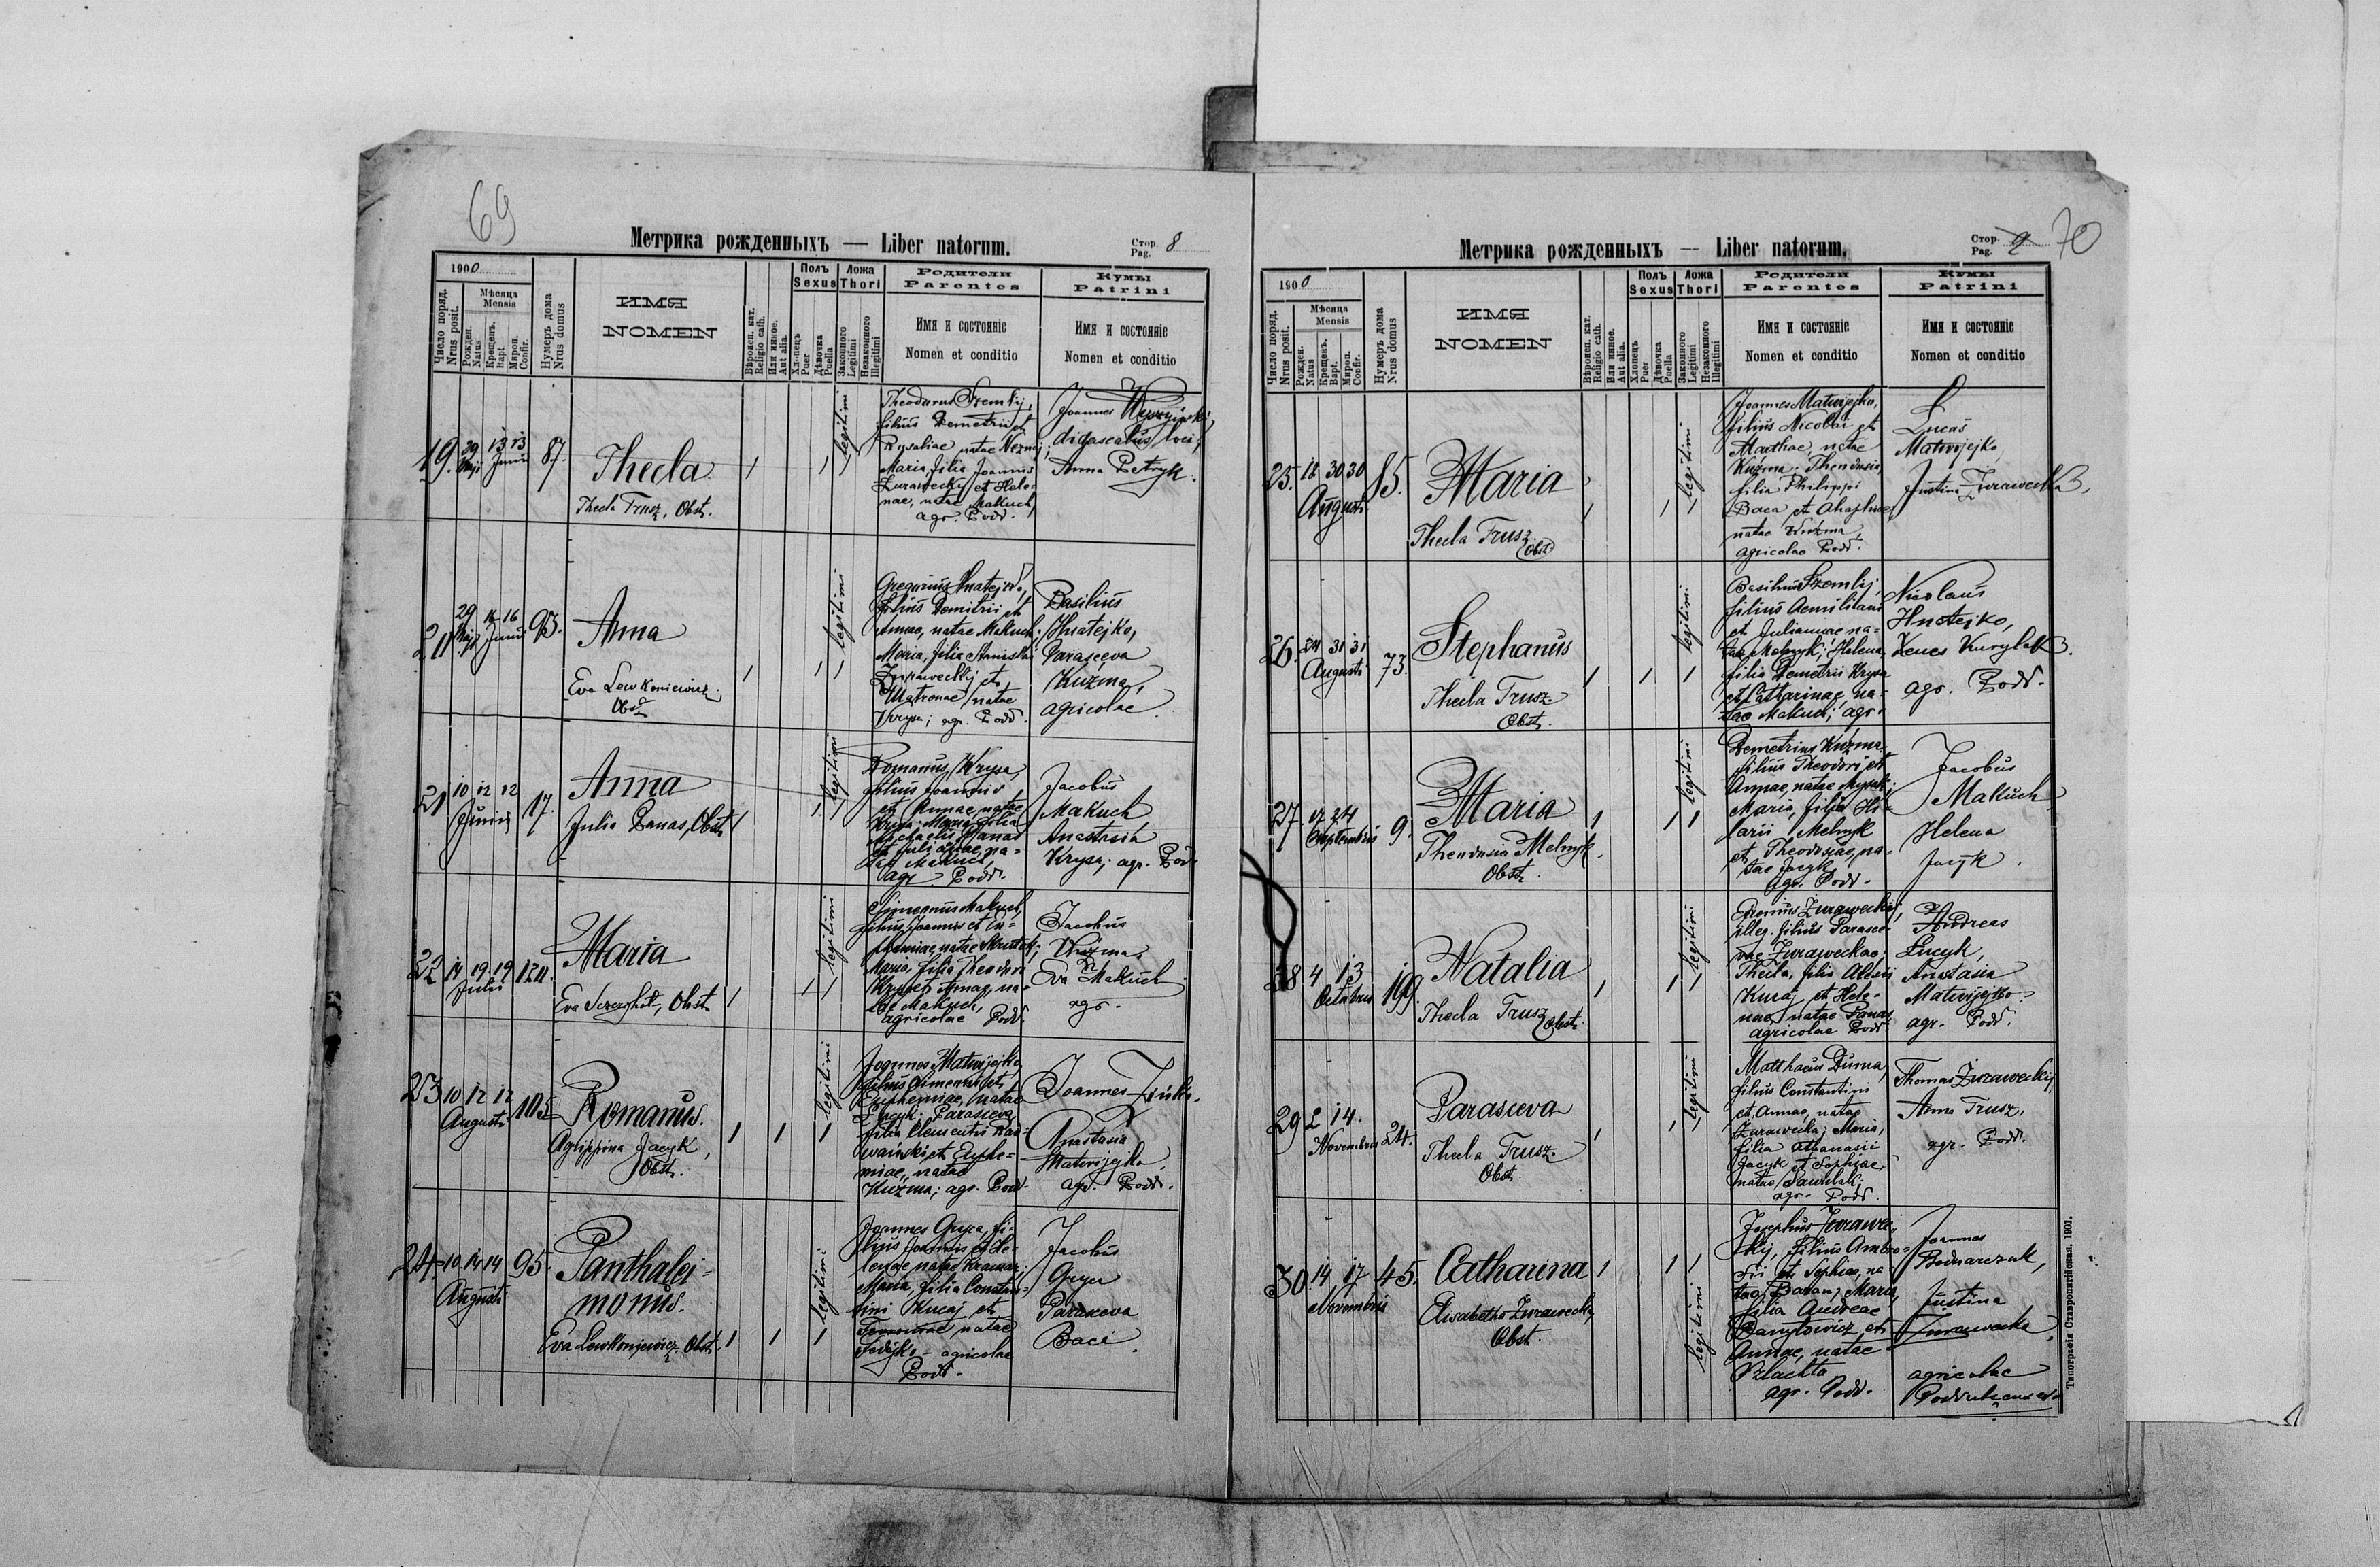 69
Метрика рожденныхъ — Liber natorum.
Стор. Pag. 8
1900
Число поряд. Nrus posit.
Мѣсяца Mensis
Рожден. Natus
Крещенъ. Bapt.
Мироп. Confir.
Нумеръ дома Nrus domus
ИМЯ
NOMEN
Вѣроисп. кат. Religio cath.
Или иное. Aut alia.
Полъ Sexus
Хлопецъ Puer
Дѣвочка Puella
Ложа Thori
Законного Legitimi
Незаконного Illegitimi
Родители
Parentes
Имя и состояніе
Nomen et conditio
Кумы
Patrini
Имя и состояніе
Nomen et conditio
19. 29 Maji 13 13 Junii 87.
Thecla
Thecla Trusz, Obst.
legitimi
Theodorus Szemlij,
filius Demetrii et
Rosaliae natae
Maria, filia Joannis
Żurawecky et Hele-
nae, natae Makuch,
agr. Podd.
Joannes
didascalus loci,
Anna Petryk.
29 Maji 16 16 Junii 93.
Anna
Eva Lewkoniewicz
Obst.
legitimi
Gregorius Hnatejko,
filius Demitrii et
Annae, natae Makuch;
Maria, filia Stanislai
Żurawecky et
Matronae, natae
Krysa; agr. Podd.
Basilius
Hnatejko,
Parasceva
Kuźma,
agricolae.
21 10 12 12 Junii 17.
Anna
Julia Panas, Obst.
legitimi
Romanus Krysa,
filius Joannis
et Annae, natae
Krysa; Maria, filia
Michaelis Panas
et Julianae, na-
tae Makuch,
agr. Podd.
Jacobus
Makuch
Anastasia
Krysa; agr. Podd.
22 14 19 19 Julii
Maria
Eva, Obst.
legitimi
Simeonus Makuch,
filius Joannis et Eu-
phemiae, natae
Maria, filia Theodori
Krysa et Annae, na-
tae Makuch,
agricolae Podd.
Jacobus
Kuźma,
Eva Makuch
agr.
23 10 12 12 Augusti 105
Romanus.
Agrippina Jacyk,
Obst.
legitimi
Joannes Matwijejko,
filius Simeonis et
Euphemiae, natae
Łucyk; Parasceva,
filia Clementis
et Euphe-
miae, natae
Kuźma; agr. Podd.
Joannes
Anastasia
Matwijejko,
agr. Podd.
24. 10 14 14 Augusti 95.
Panthalei-
monus.
Eva Lewkoniewicz, Obst.
legitimi
Joannes Gryca, fi-
lius Joannis et He-
lenae natae Kramar;
Maria, filia Constan-
tini Kucaj et
natae
Fedejko - agricolae
Podd.
Jacobus
Gryca
Parasceva
Baca.
Метрика рожденныхъ — Liber natorum.
Стор. Pag. 9 70
1900
Число поряд. Nrus posit.
Мѣсяца Mensis
Рожден. Natus
Крещенъ. Bapt.
Мироп. Confir.
Нумеръ дома Nrus domus
ИМЯ
NOMEN
Вѣроисп. кат. Religio cath.
Или иное. Aut alia.
Полъ Sexus
Хлопецъ Puer
Дѣвочка Puella
Ложа Thori
Законного Legitimi
Незаконного Illegitimi
Родители
Parentes
Имя и состояніе
Nomen et conditio
Кумы
Patrini
Имя и состояніе
Nomen et conditio
25. 18 30 30 Augusti 85.
Maria
Thecla Trusz
Obst.
legitimi
Joannes Matwijejko,
filius Nicolai et
Marthae, natae
Kuźma; Theodosia,
filia Philippi
Baca et Ahaphiae,
natae Kuźma,
agricolae Podd.
Lucas
Matwijejko,
Justina Żurawecka.
26. 24 31 31 Augusti 73.
Stephanus
Thecla Trusz
Obst.
legitimi
Basilius Szemlij,
filius Aemiliani
et Julianae na-
tae Melnyk; Helena,
filia Demetrii Krysa
et Catharinae, na-
tae Makuch; agr.
Nicolaus
Hnatejko,
Xenes
agr. Podd.
27. 17 24 Septembris 9.
Maria
Theodosia Melnyk.
Obst.
legitimi
Demetrius Kuźma,
filius Theodori et
Annae, natae
Maria, filia Hi-
larii Melnyk
et Theodosiae, na-
tae Jacyk
agr. Podd.
Jacobus
Makuch
Helena
Jacyk.
28 4 13 Octobris 199.
Natalia
Thecla Trusz
Obst.
legitimi
Żurawecky,
illeg. filius Parasce-
vae Żuraweckae;
Thecla, filia Alexii
Kucaj et Hele-
nae, natae Panas,
agricolae Podd.
Andreas
Łucyk,
Anastasia
Matwijejko.
agr. Podd.
29 2 14. Novembris 24.
Parasceva
Thecla Trusz
Obst.
legitimi
Matthaeus Duma,
filius Constantini
et Annae, natae
Żurawecka; Maria,
filia Athanasii
Jacyk et Sophiae,
natae
agr. Podd.
Thomas Żurawecky,
Anna Trusz,
agr. Podd.
30. 14 17 Novembris 45.
Catharina
Elisabetha Żurawecka,
Obst.
legitimi
Josephus Żurawe-
ckij, filius Ambro-
sii et Sophiae, na-
tae Baran; Maria,
filia Andreae
et
Annae, natae
agr. Podd.
Joannes
Bodnarczuk,
Justina
Żurawecka,
agricolae
Типографія Ставропигійская. 1901.